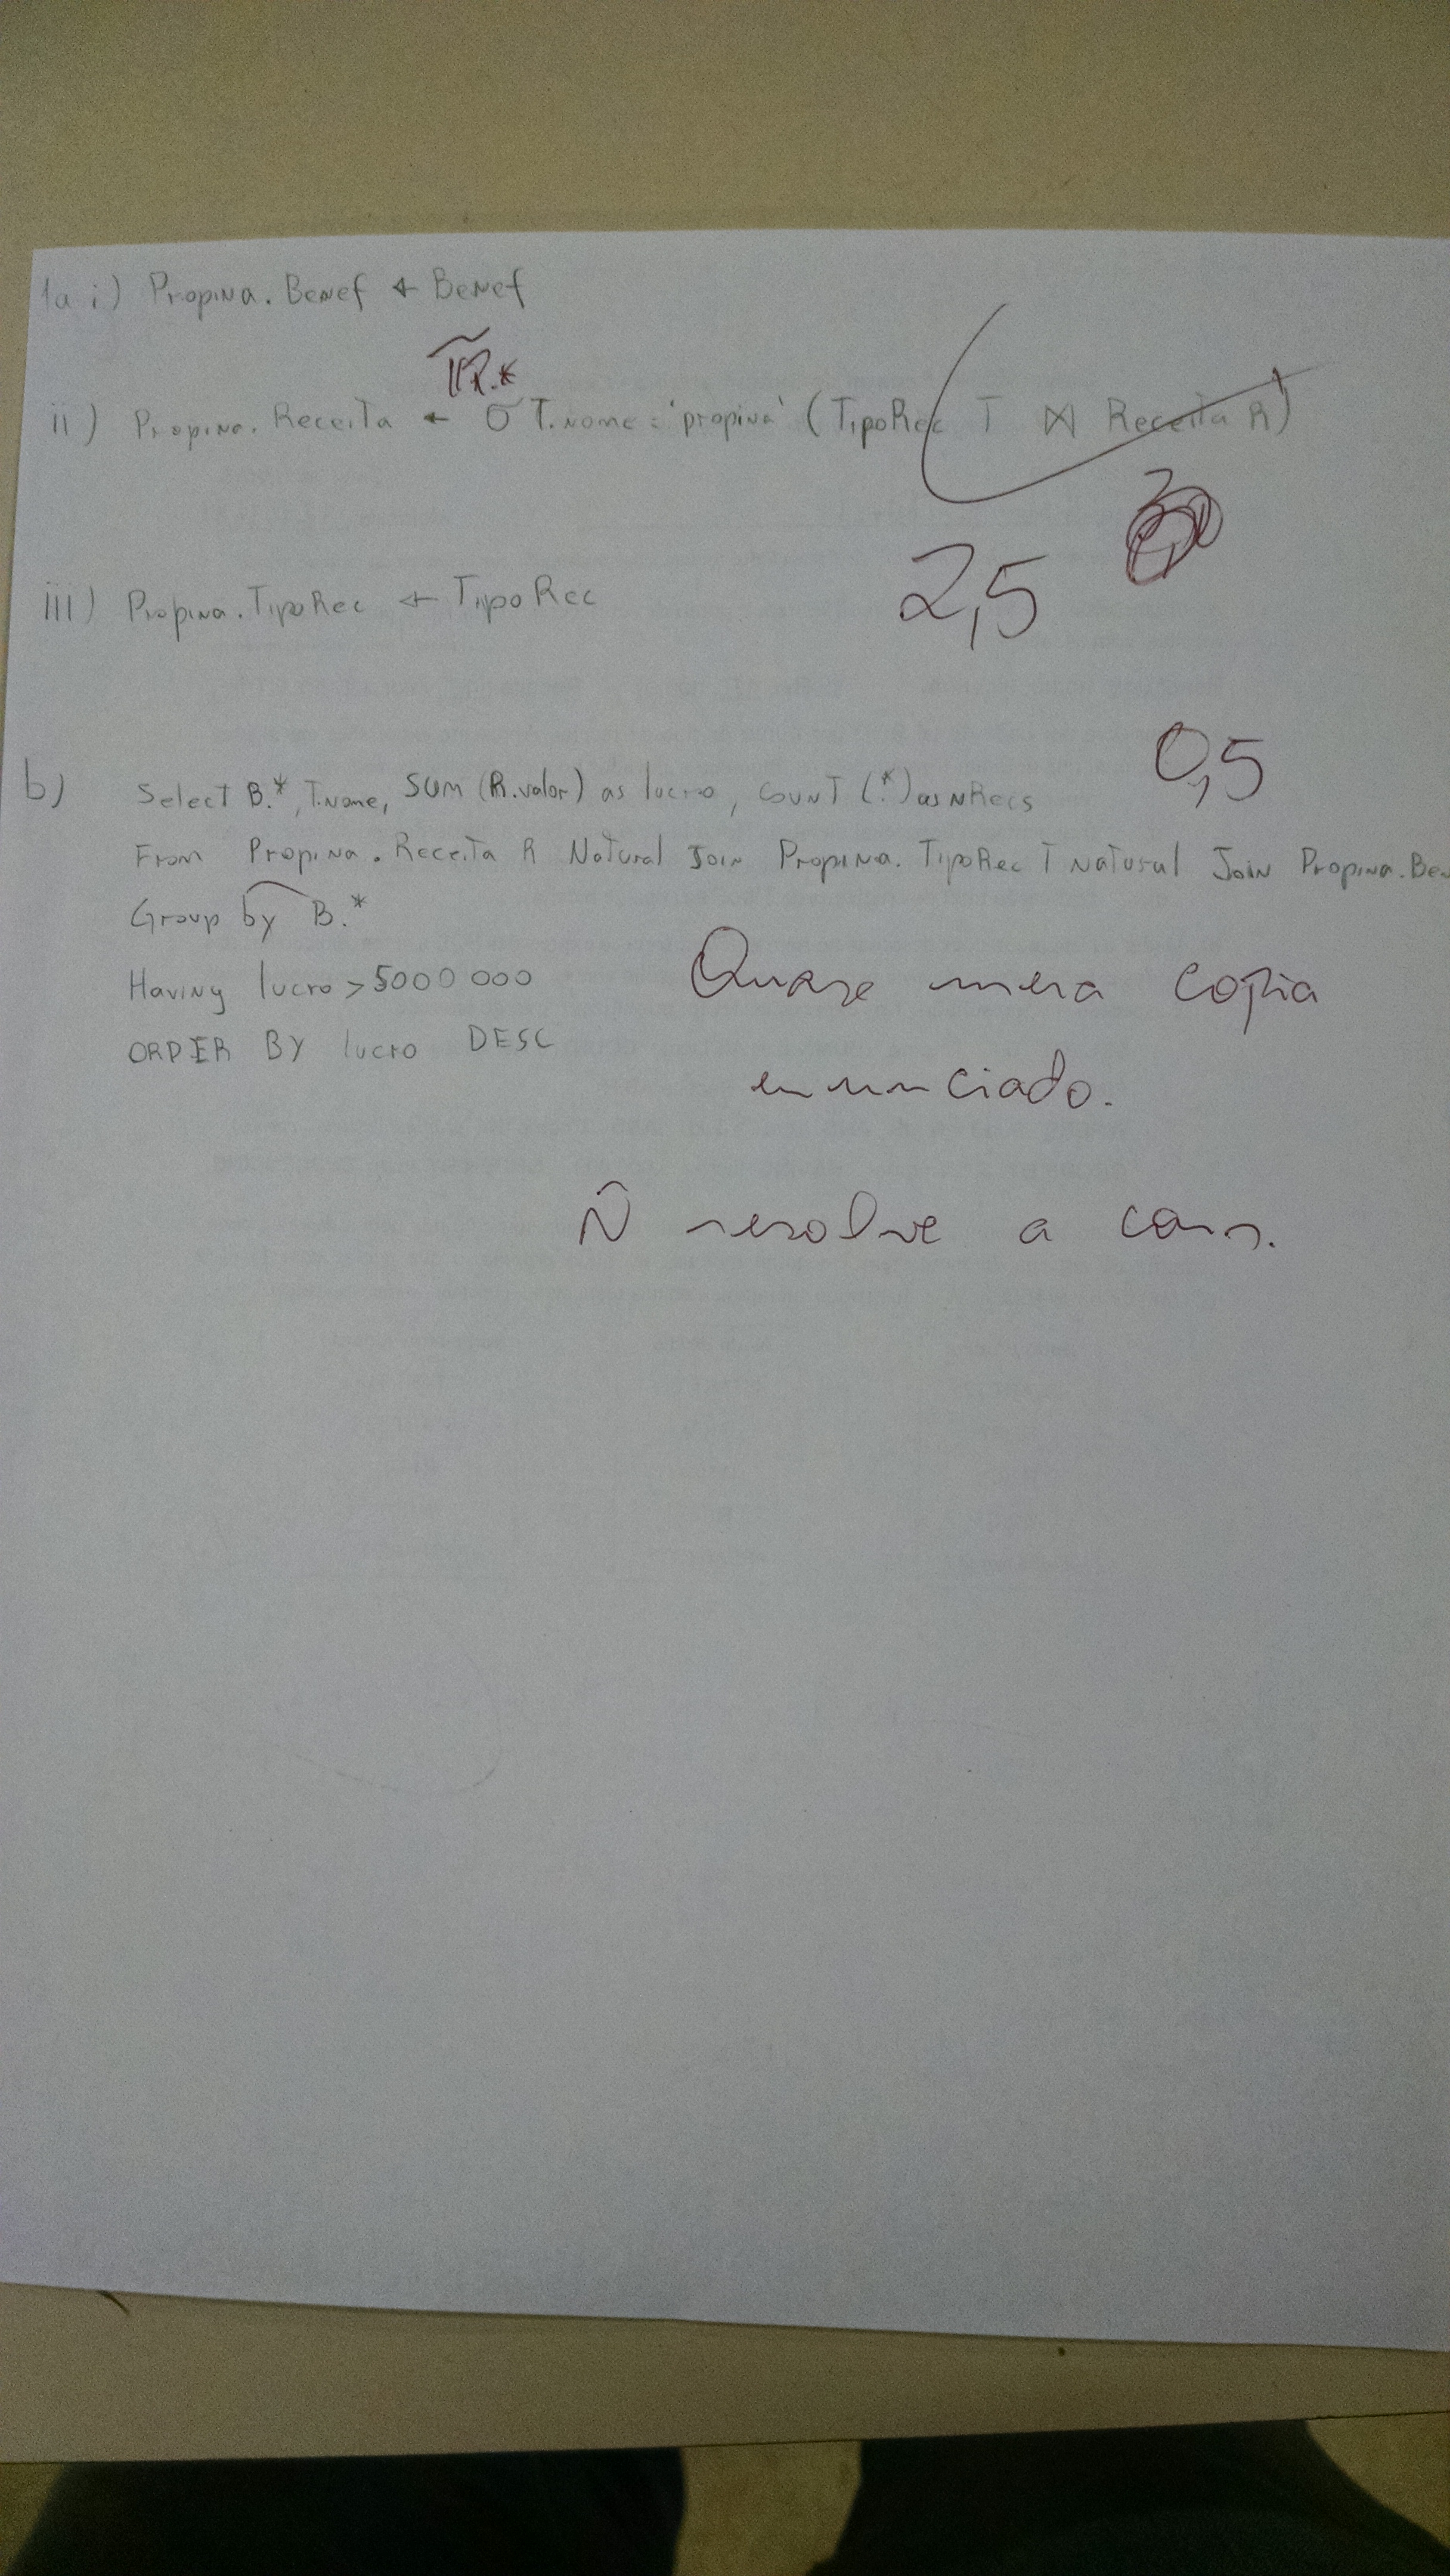 1a i) Propina.Benef ← Benef
π R.*
ii) Propina.Receita ← σ T.nome = 'propina' (TipoRec T ⋈ Receita R)
2,5
iii) Propina.TipoRec ← TipoRec
0,5
b) Select B.*, T.nome, SUM (R.valor) as lucro, count (*) as nRecs
From Propina.Receita R Natural Join Propina.TipoRec T Natural Join Propina.Be
Group by B.*
Having lucro > 5000 000
ORDER BY lucro DESC
Quase mera copia
enunciado.
Ñ resolve a cons.